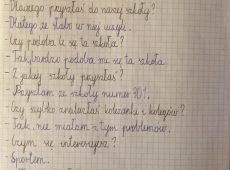 - Dlaczego przyszłaś do naszej szkoły?
- Dlatego, że słabo w niej uczyli.
- Czy podoba ci się ta szkoła?
- Tak, bardzo podoba mi się ta szkoła.
- Z jakiej szkoły przyszłaś?
- Przyszłam ze szkoły numer 30.
- Czy szybko znalazłaś koleżanki i kolegów?
- Tak, nie miałam z tym problemów.
- Czym się interesujesz?
- Sportem.